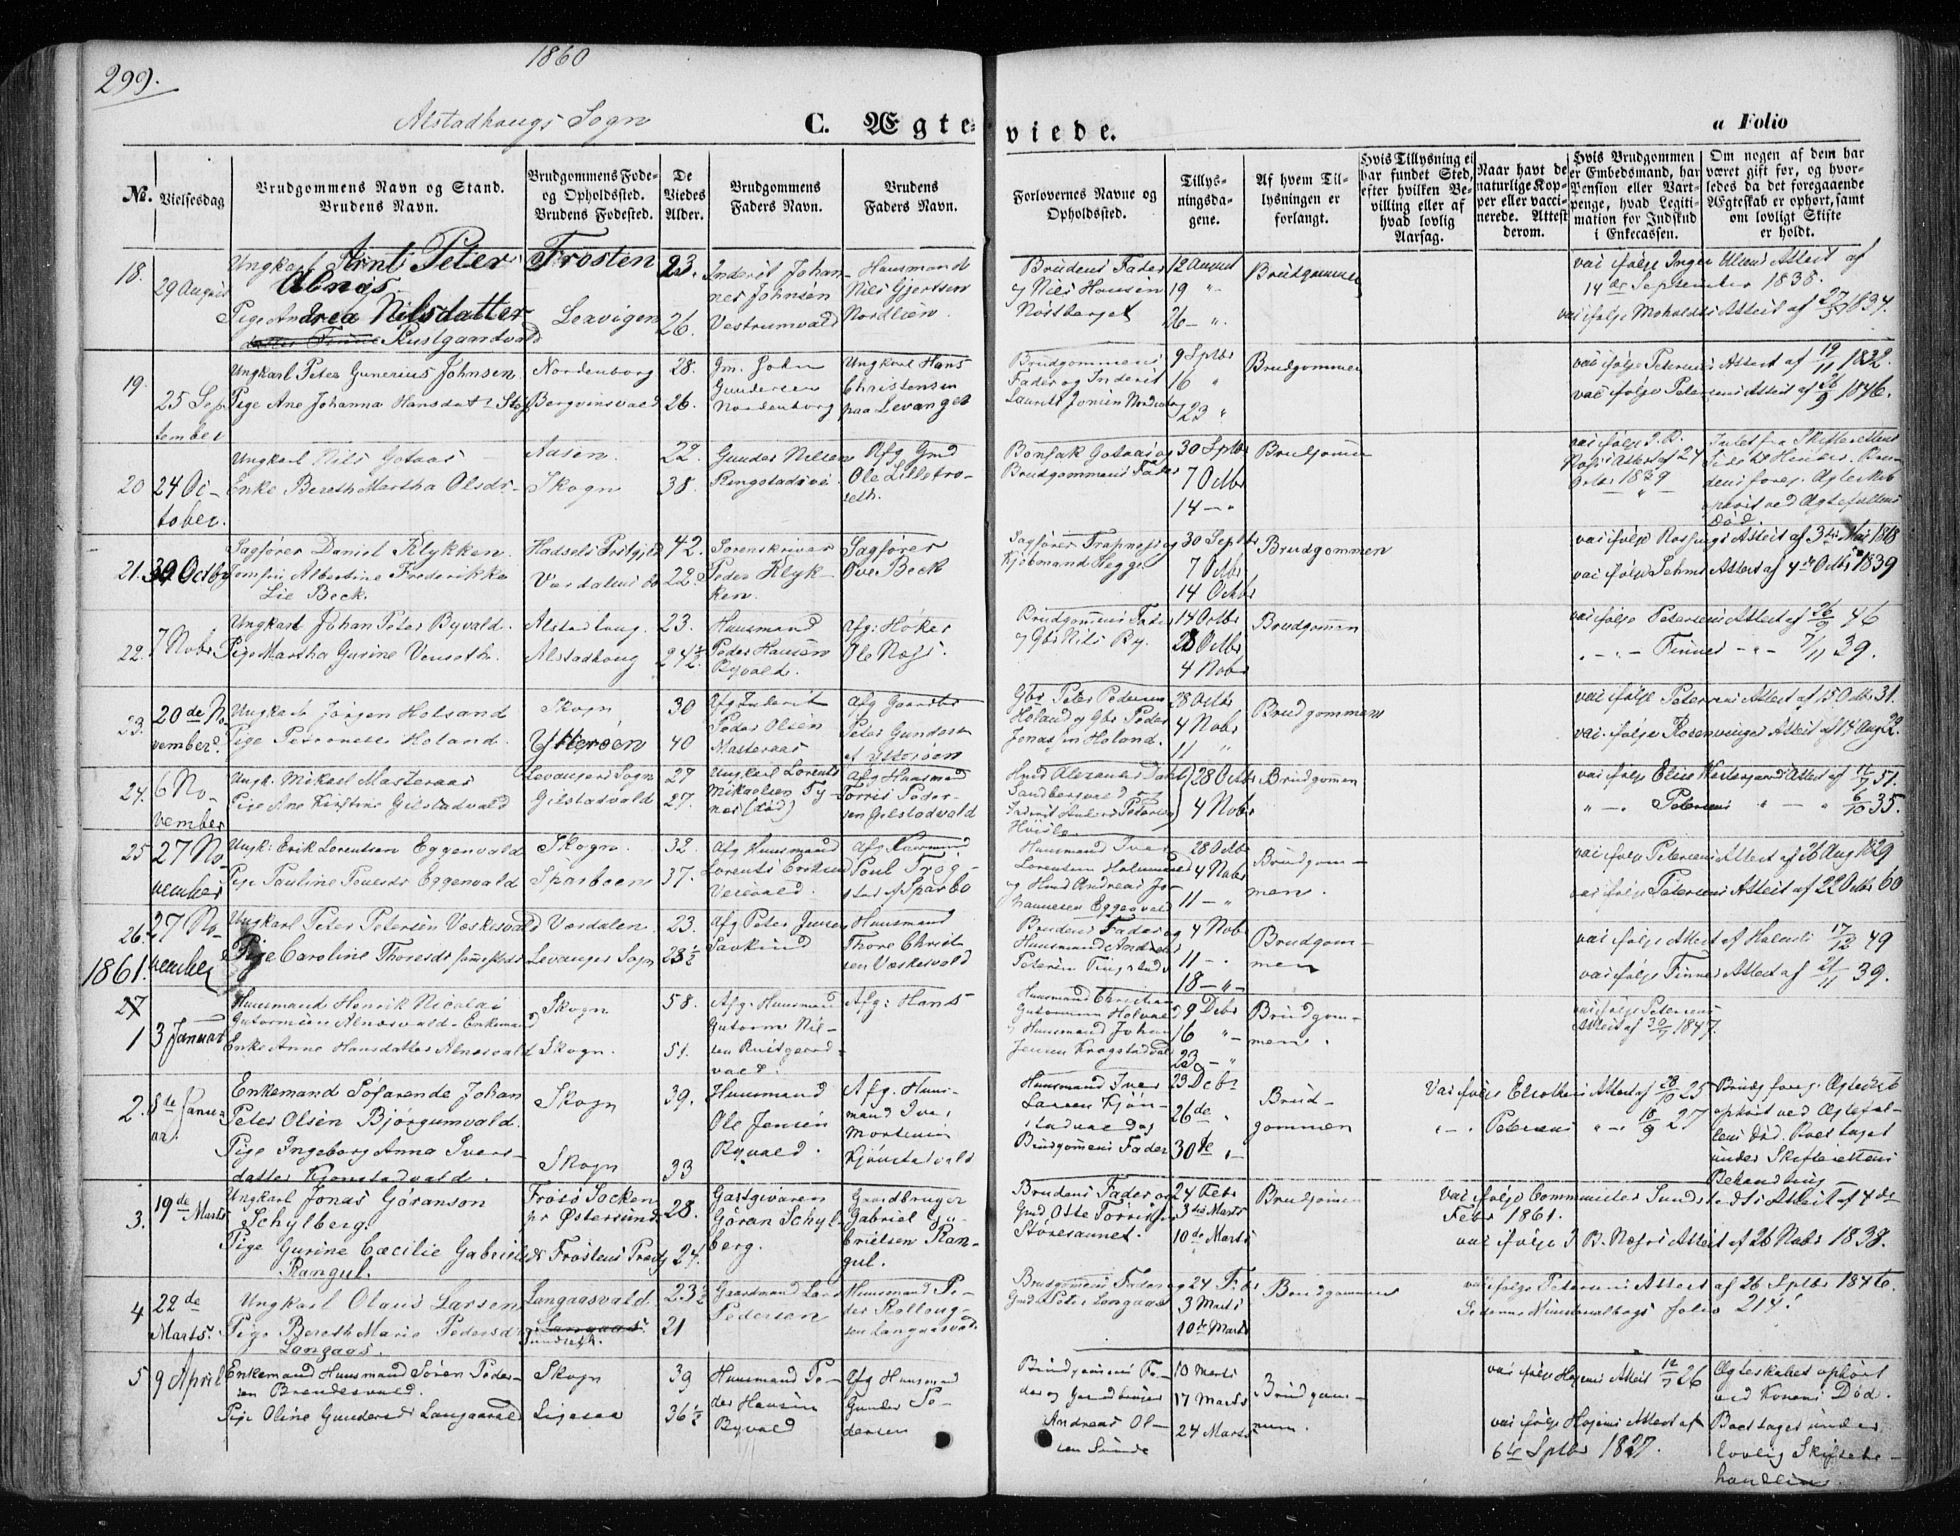 299.
1860
Alstadhougs Sogn
C. Ægte-
viede.
a Folio
No.
Vielsesdag
Brudgommens Navn og Stand.
Brudens Navn.
Brudgommens Føde-
og Opholdssted.
Brudens Fødested.
De
Viedes
Alder.
Brudgommens
Faders Navn.
Brudens
Faders Navn.
Forlovernes Navne og
Opholdssted.
Tillys-
ningsda-
gene.
Af hvem Til-
lysningen er
forlangt.
Hvis Tillysning ei
har fundet Sted,
efter hvilken Be-
villing eller af
hvad lovlig
Aarsag.
Naar havt de
naturlige Kop-
per eller vacci-
nerede. Attest
derom.
Hvis Brudgommen
er Embedsmand, har
Pension eller Vart-
penge, hvad Legiti-
mation for Indskud
i Enkecassen.
Om nogen af dem har
været gift for, og hvor-
ledes da det foregaaende
Ægteskab er ophørt, samt
om lovligt Skifte
er holdt.
18.
29 August
Ungkarl Arnt Peter
Alnæs
Pige Andrea Nilsdatter
Rustgaardvald
Frosten
Lexvigen
23.
26.
Inderst Johan-
nes Johnsen
Vestrumvald
Huusmand
Nils Gjertsen
Nordlien
Brudens Fader
og Nils Hansen
Nordberget
12 August
19 "
26 - ".
Brudgommen
vac ifølge Inger Ulens Attest af
14de September 1838.
vac ifølge Moholdts Attest af 27/5 1834.
19.
25 Sep-
tember
Ungkarl Peter Gunerius Johnsen
Pige Ane Johanna Hansdatr
Nordenborg
Bergvinsvald
28.
26.
Gm. John
Gundersen
Nordenborg
Ungkarl Hans
Christensen
paa Levanger
Brudgommens
Fader og Inderst
Laurits Jonsen
9 Sptbr
16 "
23 "
Brudgommen
vac ifølge Petersens Attest af 19/11 1832.
vac ifølge Petersens Attest af 26/9 1846.
20
24 Oc-
tober.
Ungkarl Nils Gotaas
Enke Bereth Martha Olsdr
Aasen.
Skogn
22.
38.
Gunder Nilsen
Ringstadsvé
Afg Gmd
Ole Lilletro-
seth.
Bonfak Gotaas og
Brudgommens Fader
30 Sptbr
7 Octbr
14 - "
Brudgommen
vac ifølge J. B.
Næss Attest af 24
Octbr 1839
dens foreg. Ægteskab
ophørt ved Ægtefællens
Død.
21.
30 Octbr
Sagfører Daniel Klykken
Jomfru Albertine Frederikke
Lie Beck.
Hadsels Prstgjld
Værdalens do
42.
22.
Sorenskriver
Peder Klyk-
ken.
Sagfører
Ove Beck
Sagfører Trapnes og
Kjøbmand Hegge
30 Septbr
7 Octbr
14 Octbr
Brudgommen
vac ifølge Attest af 3die Mai 1818
vac ifølge Lehms Attest af 4de Octbr 1839
22.
7 Nobr
Ungkarl Johan Peter Byvald.
Pige Martha Gurine Venseth.
Alstadhoug.
Alstadhoug
23.
24½
Huusmand
Peder Hansen
Byvald.
Afg: Høker
Ole Næss.
Brudgommens Fader
og Gbr Nils By.
14 Octbr
28 Octbr
4 Nobr
Brudgommen
vac ifølge Petersens Attest af 26/9 46
" - " - Finnes - " - 7/11 39.
23.
20de No-
vember.
Ungkarl Jørgen Holsand
Pige Petronelle Holand.
Skogn
Ytterøen
30
40
Afg Inderst
Peder Olsen
Masteraas
Afg Gaardbr
Peter Gunders.
af Ytterøen
Gbr Peter Pedersen
Holand og Gbr Peder
Jonassen Holand.
28 Octbr
4 Nobr
11 "
Brudgommen
vac ifølge Petersens Attest af 15 Octbr 31.
vac ifølge Rosenvinges Attest af 14 Aug 22.
24.
6 No-
vember
Ungk. Mikael Masteraas
Pige Ane Kirstine Gilstadvald
Levanger Sogn
Gilstadvald
27
27.
Ungkarl Lorents
Mikaelsen Ty-
nes (død)
Afg Huusmand
Torris Peder-
sen Gilstadvald
Hmd Alexander Dahl
Sandbersvald og
28 Octbr
4 Nobr
Brudgommen
vac ifølge Elise Westergaards Attest af 11/7 51.
" - " Petersens " - " 6/10 35.
25
27 No-
vember
Ungk: Erik Lorentsen Eggenvald
Pige Pauline Poulsdr Eggenvald
Skogn.
Sparboen
32.
37.
Afg Huusmand
Lorents Eriksen
Afg Huusmand
Poul Trog-
stad af Sparbo
Huusmand Iver
Lorentsen
og Hmd Andreas Jo-
hannesen Eggenvald
28 Octbr
4 Nobr
11 - "
Brudgom-
men.
vac ifølge Petersens Attest af 26 Aug 1829
vac ifølge Petersens Attest af 22 Octbr 60
26.
27 No-
vember
Ungkarl Peter Petersen Væskesvald
Pige Caroline Thoresdr sammesteds
Værdalen.
Levanger Sogn
23.
23½
Afg Peter Jensen
Huusmand
Thore Christ-
sen Væskesvald
Brudens Fader og
Huusmand Andreas
Petersen
4 Nobr
11 - "
18 - " -
Brudgom-
men
vac ifølge Attest af 17/12 49
vac ifølge Finnes Attest af 21/11 39.
1861.
27
1
3 Januar
Huusmand Henrik Nicolai
Gutormsen Alnæsvald - Enkemand
Enke Anne Hansdatter Alnæsvald
Skogn
Skogn.
58.
51.
Afg. Huusmand
Gutorm Nil-
sen
vald
Afg: Hans
Huusmand Christian
Gutormsen Holvald
og Huusmand Johan
Jensen Kragstadvald
9 Debr
16 " -
23 - "
Brudgom-
men.
vac ifølge Petersens
Attest af 30/7 1847.
2.
8te Janu-
ar.
Enkemand Søfarende Johan
Peter Olsen Bjørgumvald.
Pige Ingeborg Anna Ivers-
datter Kjønstadvald.
Skogn
Skogn
39.
33
Huusmand
Ole Jensen
Byvald.
Afg. Huus-
mand Iver
Mortensen
Kjønstadvald
Huusmand Iver
Larsen Kjøn-
stadvald og
Brudgommens Fader
23 Debr
26de "
30de "
Brud-
gommen
Vac ifølge Attest af 28/10 25
" - " Petersens " - " 18/9 27
Brudg foreg. Ægteskab
ophørt ved Ægtefæl-
lens død. Boet taget
under Skifterettens
Behandling
3.
19de Marts
Ungkarl Jonas Göranson
Schylberg.
Pige Gurine Cæcilie Gabrielsdr
Rangul.
Frøsö Socken
pr Østersund
Frostens Prstgj
28.
24.
Gastgivaren
Göran Schyl-
berg.
Gaardbruger
Gabriel Ga-
brielsen Ran-
gul.
Brudens Fader og
Gmd Otte Torrissen
Støresaunet.
24 Febr
3die Marts
10de Marts
Brudgommen
vac ifølge Communister Sundstedts Attest af 4de
Febr 1861.
vac ifølge J. B. Næss Attest af 26 Nobr 1838.
4
22de
Marts
Ungkarl Olaus Larsen
Pige Bereth Marie Pedersdr
Langaas.
Langaasvald.
Langaas.
23½
21
Gaardmand Lars
Pedersen
Huusmand Pe-
der Halloug-
sen Langaasvald
Brudgommens Fader og
Gmd Peter Langaas
24 Febr
3 Marts
10de Marts
Brudgommen
vac ifølge Petersens Attest af 26 Sptbr 1846.
folio 214.
5
9 April
Enkemand Huusmand Søren Peder-
sen Brendesvald.
Pige Oline Gundersdr Langaasvald
Skogn
39
36½
Huusmand Pe-
der Hansen
Byvald
Afg Huusmd
Gunder Pe-
dersen
Brudgommens Fa-
der og Gaardbruger
Andreas Ol-
sen Sunde
10 Marts
17 Marts
24 Marts
Brudgom-
men.
vac ifølge Højems Attest 12/7 26
vac ifølge Højems Attest af
6te Sptbr 1827.
Ægteskabet ophørt
ved Konens Død.
Boet taget under
lovlig Skiftebe-
handling